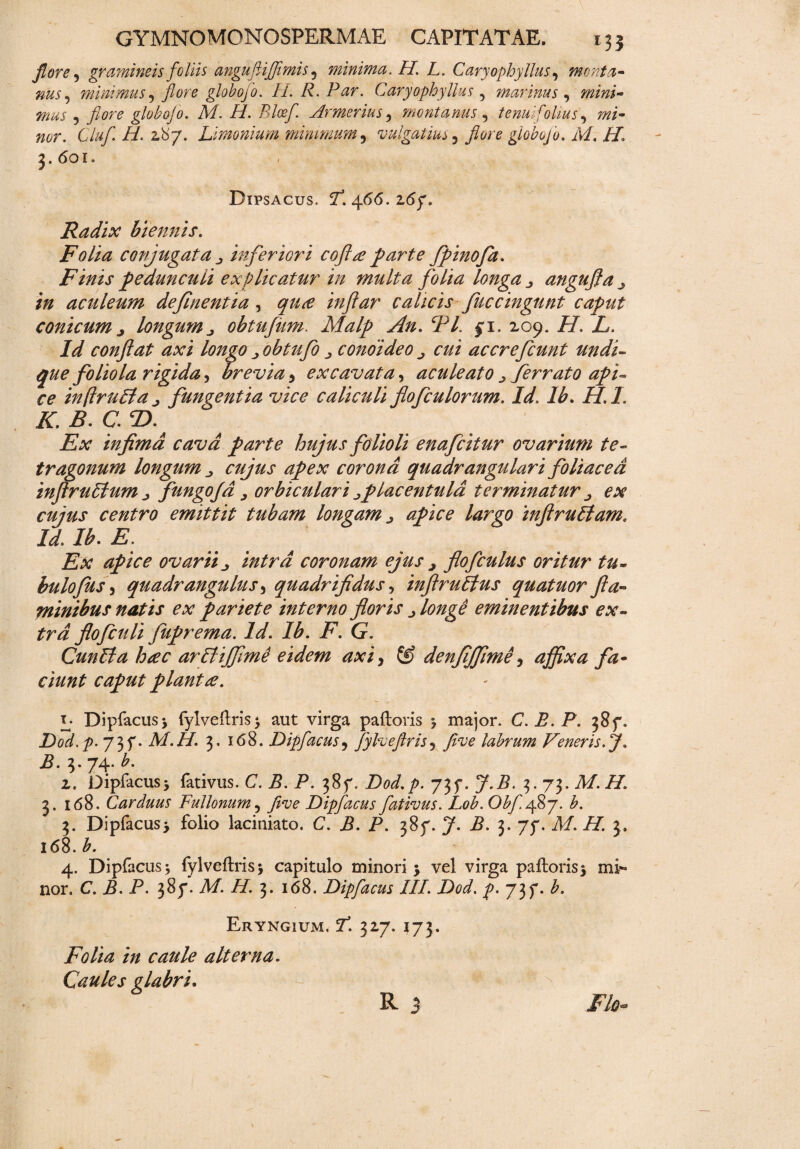 GYMNOMONOSPERMAE CAPITATAE. 133
flore, gramineis foliis anguſtiſſimis, minima. H. L. Caryophyllus, monta-
nus, minimus, flore globoſo. H. R. Par. Caryophyllus, marinus, mini-
mus, flore globoſo. M. H. Blœſ. Armerius, montanus, tenuifolius, mi-
nor. Cluſ. H. 287. Limonium minimum, vulgatius, flore globoſo. M. H.
3. 601.
DIPSACUS. T. 466. 265.
Radix biennis.
Folia conjugata, inferiori coſtæ parte ſpinoſa.
Finis pedunculi explicatur in multa folia longa, anguſta,
in aculeum deſinentia, quæ inſtar calicis ſuccingunt caput
conicum, longum, obtuſum. Malp An. Pl. 51. 209. H. L.
Id conſtat axi longo, obtuſo, conoïdeo, cui accreſcunt undi-
que foliola rigida, brevia, excavata, aculeato, ſerrato api-
ce inſtructa, fungentia vice caliculi floſculorum. Id. Ib. H. I.
K. B. C. D.
Ex infimâ cavâ parte hujus folioli enaſcitur ovarium te-
tragonum longum, cujus apex coronâ quadrangulari foliaceâ
inſtructum, fungoſâ, orbiculari, placentulâ terminatur, ex
cujus centro emittit tubam longam, apice largo inſtructam.
Id. Ib. E.
Ex apice ovarii, intrâ coronam ejus, floſculus oritur tu-
buloſus, quadrangulus, quadrifidus, inſtructus quatuor ſta-
minibus natis ex pariete interno floris, longè eminentibus ex-
trâ floſculi ſuprema. Id. Ib. F. G.
Cuncta hæc arctiſſimè eidem axi, & denſiſſimè, affixa fa-
ciunt caput plantæ.
1. Dipſacus; ſylveſtris; aut virga paſtoris; major. C. B. P. 385.
Dod. p. 735. M. H. 3. 168. Dipſacus, ſylveſtris, ſive labrum Veneris. J.
B. 3. 74. b.
2. Dipſacus; ſativus. C. B. P. 385. Dod. p. 735. J. B. 3. 73. M. H.
3. 168. Carduus Fullonum, ſive Dipſacus ſativus. Lob. Obſ. 487. b.
3. Dipſacus; folio laciniato. C. B. P. 385. J. B. 3. 75. M. H. 3.
168. b.
4. Dipſacus; ſylveſtris; capitulo minori; vel virga paſtoris; mi-
nor. C. B. P. 385. M. H. 3. 168. Dipſacus III. Dod. p. 735. b.
ERYNGIUM. T. 327. 173.
Folia in caule alterna.
Caules glabri.
R 3 Flo-